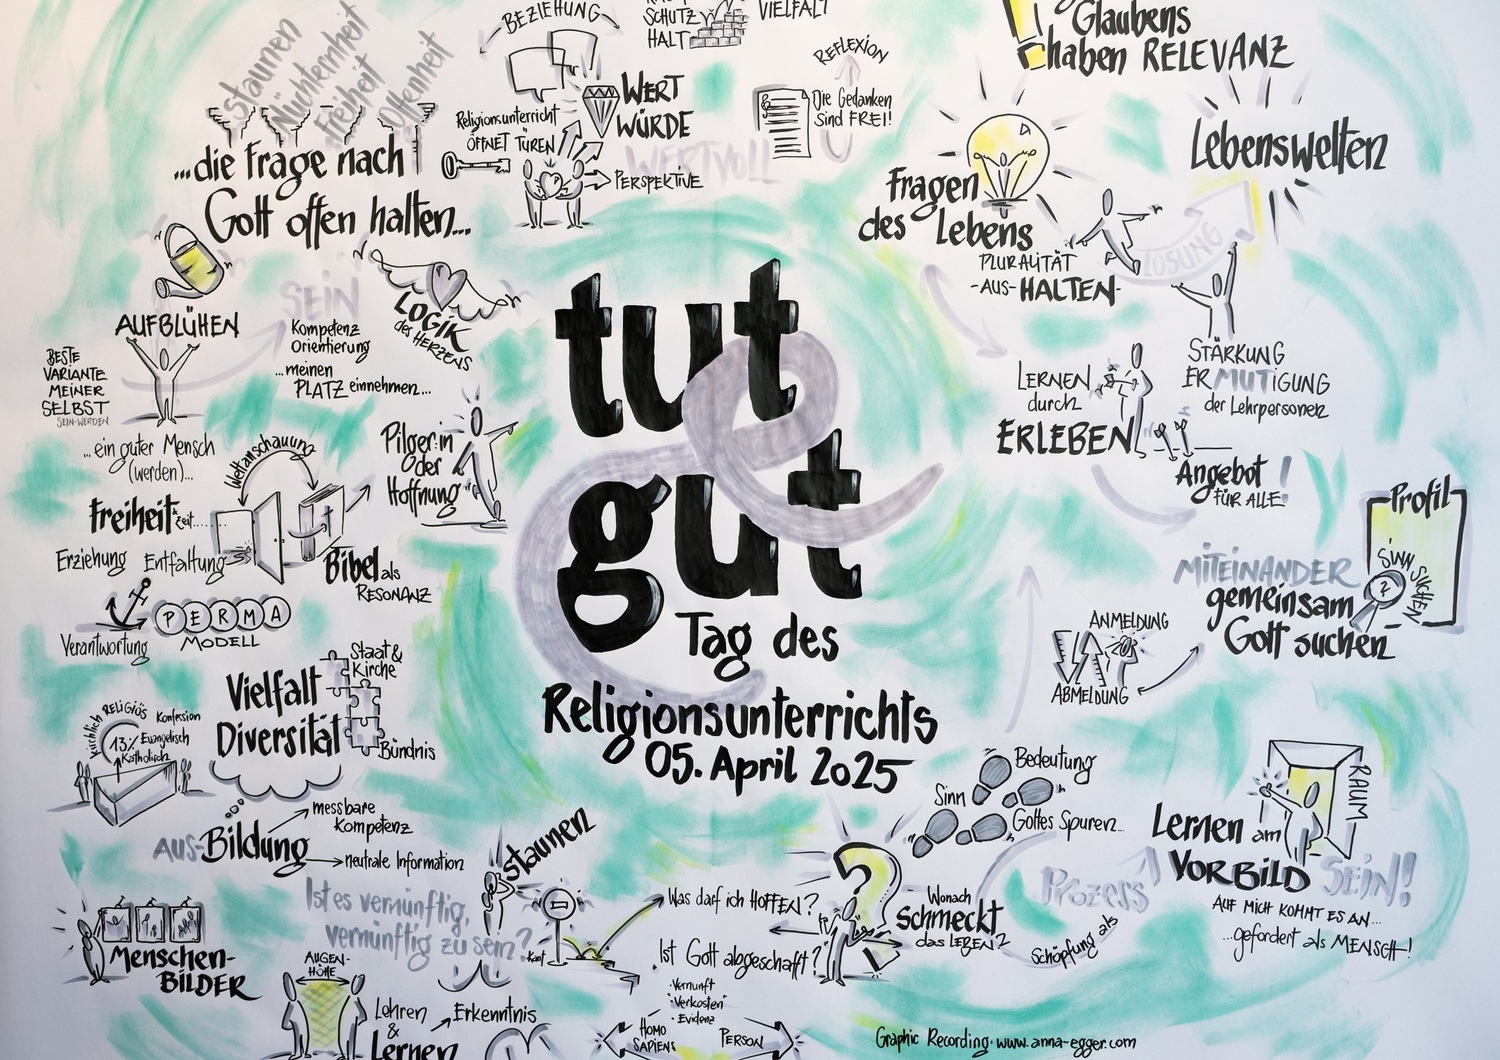 staunen
Nüchternheit
Freiheit
Offenheit
...die Frage nach
Gott offen halten...
BEZIEHUNG
SCHUTZ
HALT
VIELFALT
WERT
WÜRDE
WERTVOLL
Religionsunterricht
ÖFFNET TÜREN
PERSPEKTIVE
REFLEXION
Die Gedanken
sind FREI!
Glaubens
haben RELEVANZ
Lebenswelten
Fragen
des Lebens
PLURALITÄT
-AUS-HALTEN-
LÖSUNG
AUFBLÜHEN
BESTE
VARIANTE
MEINER
SELBST
SEIN-WERDEN
SEIN
Kompetenz
Orientierung
...meinen
PLATZ einnehmen...
LOGIK
des HERZENS
...ein guter Mensch
(werden)...
Weltanschauung
Pilger:in
der
Hoffnung
Freiheit
Erziehung Entfaltung
Bibel als
RESONANZ
Verantwortung
PERMA
MODELL
tut
gut
Tag des
Religionsunterrichts
05. April 2025
LERNEN
durch
ERLEBEN
STÄRKUNG
ERMUTIGUNG
der Lehrpersonen
Angebot
FÜR ALLE!
Profil
SINN SUCHEN
MITEINANDER
gemeinsam
Gott suchen
ANMELDUNG
ABMELDUNG
Vielfalt
Diversität
Staat &
Kirche
Bündnis
kirchlich RELIGIÖS Konfession
13% Evangelisch
Katholisch
AUS-Bildung
messbare
Kompetenz
neutrale Information
staunen
Ist es vernünftig,
vernünftig zu sein?
Kant
Menschen-
BILDER
AUGEN-
HÖHE
Lehren
&
Lernen
Erkenntnis
Was darf ich HOFFEN?
Ist Gott abgeschafft?
• Vernunft
• "Verkosten"
• Evidenz
HOMO
SAPIENS
PERSON
Sinn
Bedeutung
Gottes Spuren...
Wonach
schmeckt
das LEBEN?
Prozess
Schöpfung als
Lernen am
VORBILD SEIN!
RAUM
AUF MICH KOMMT ES AN...
...gefordert als MENSCH!
Graphic Recording · www.anna-egger.com